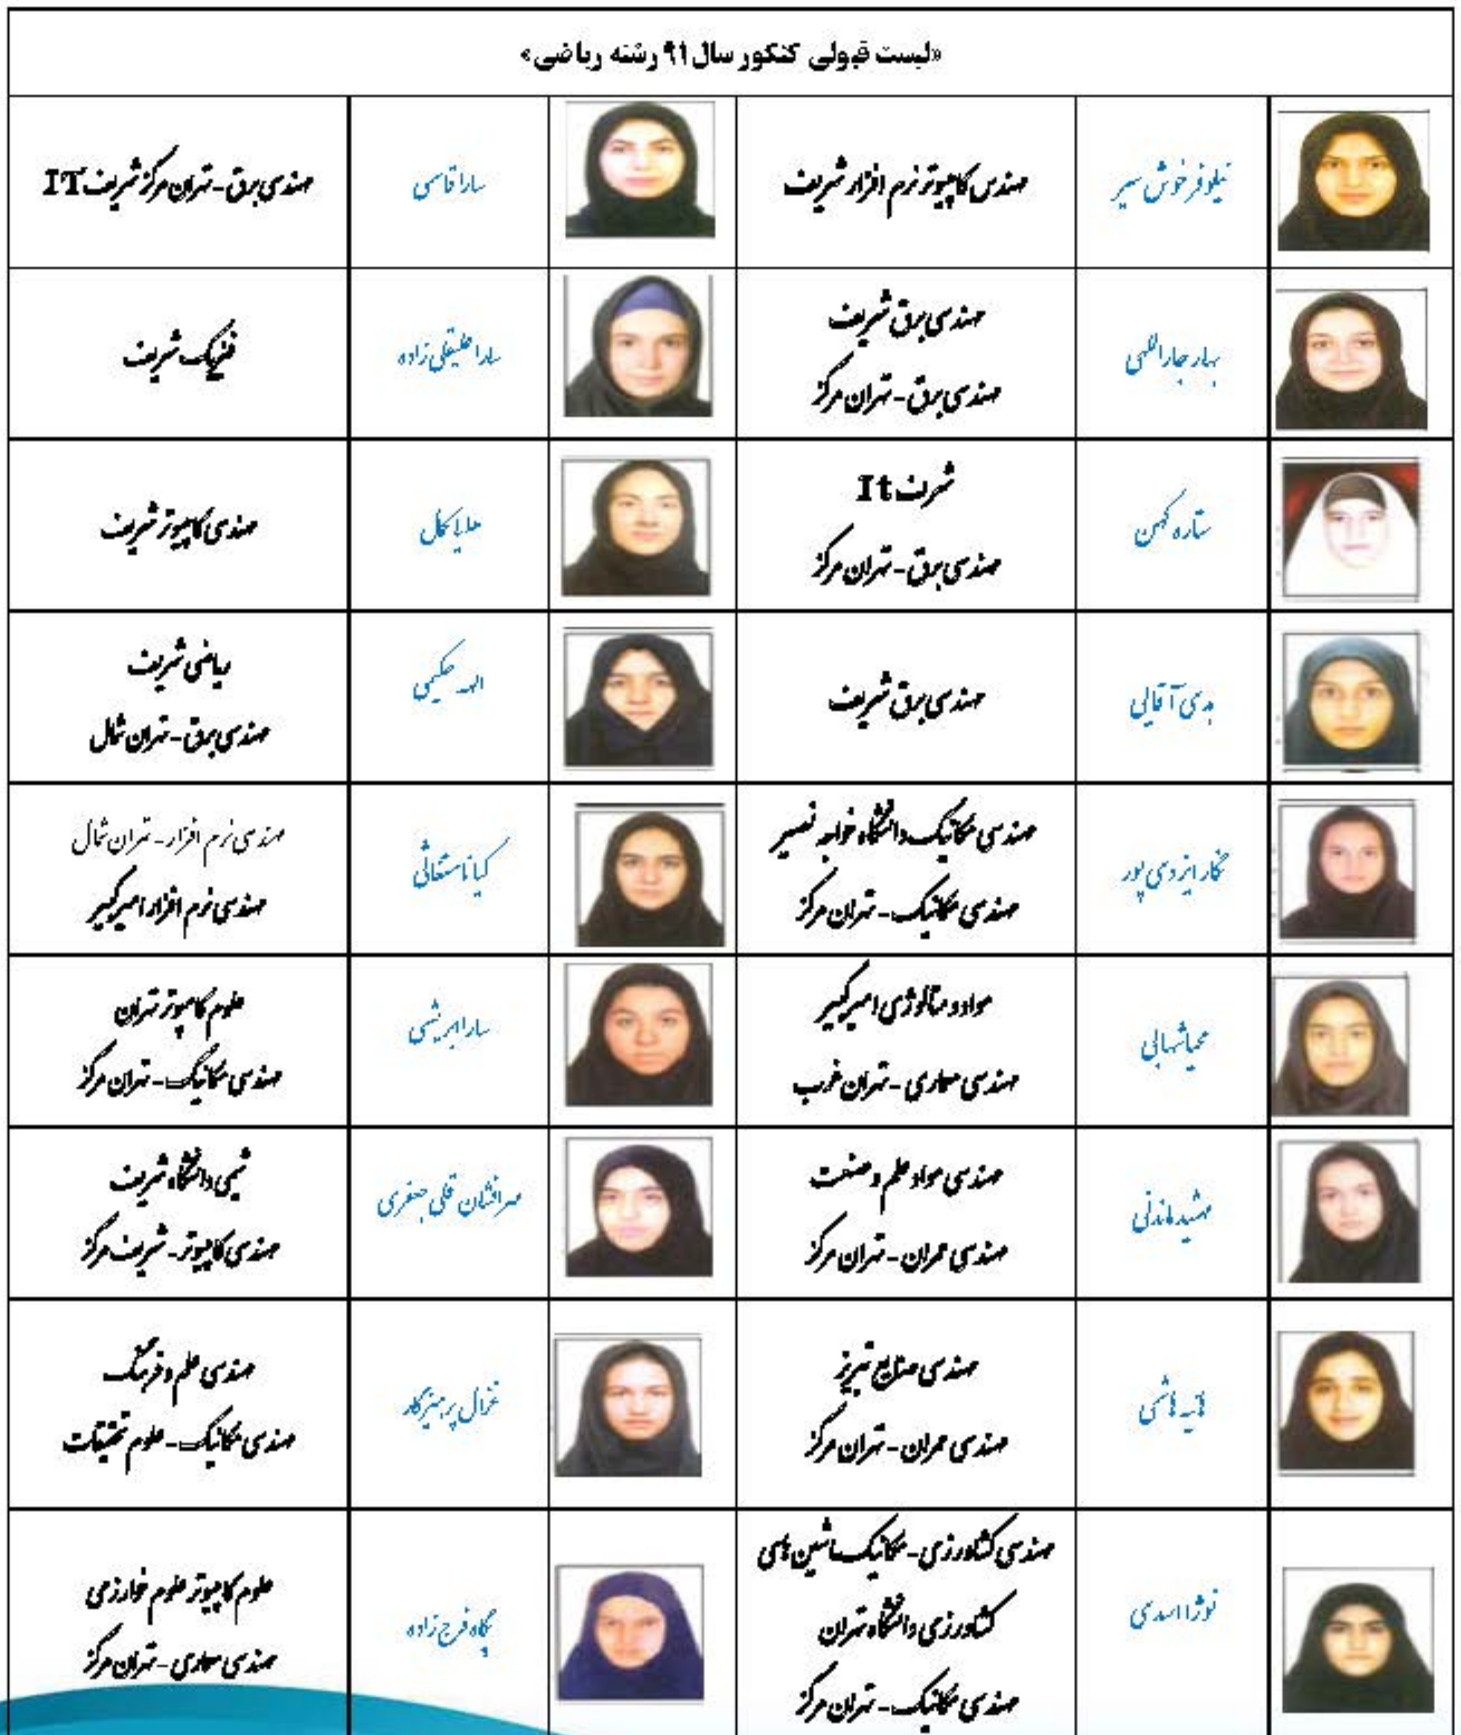 «لیست قبولی کنکور سال ۹۱ رشته ریاضی»
نیلوفر خوش سیر
مهندس کامپیوتر نرم افزار شریف
سارا قاسمی
مهندسی برق - تهران مرکز شریف IT
بهار جاراللهی
مهندسی برق شریف
مهندسی برق - تهران مرکز
سارا علیقلی زاده
فیزیک شریف
ستاره کهن
شریف It
مهندسی برق - تهران مرکز
کمال
مهندسی کامپیوتر شریف
هدی آقالی
مهندسی برق شریف
الهه حکیمی
ریاضی شریف
مهندسی برق - تهران شمال
نگار ایزدی پور
مهندسی مکانیک دانشگاه خواجه نصیر
مهندسی مکانیک - تهران مرکز
کیانا
مهندسی نرم افزار - تهران شمال
مهندسی نرم افزار امیرکبیر
محیا شهابی
مواد و متالوژی امیرکبیر
مهندسی معماری - تهران غرب
سارا ابریشمی
علوم کامپیوتر تهران
مهندسی مکانیک - تهران مرکز
مهشید
مهندسی مواد علم و صنعت
مهندسی عمران - تهران مرکز
مهرافشان قلی جعفری
شیمی دانشگاه شریف
مهندسی کامپیوتر - شریف مرکز
هاشمی
مهندسی صنایع تبریز
مهندسی عمران - تهران مرکز
غزال پرهیزگار
مهندسی علم و فرهنگ
مهندسی مکانیک - علوم تحقیقات
اسدی
مهندسی کشاورزی - مکانیک ماشین های
کشاورزی دانشگاه تهران
مهندسی مکانیک - تهران مرکز
پگاه فرج زاده
علوم کامپیوتر علوم خوارزمی
مهندسی معماری - تهران مرکز